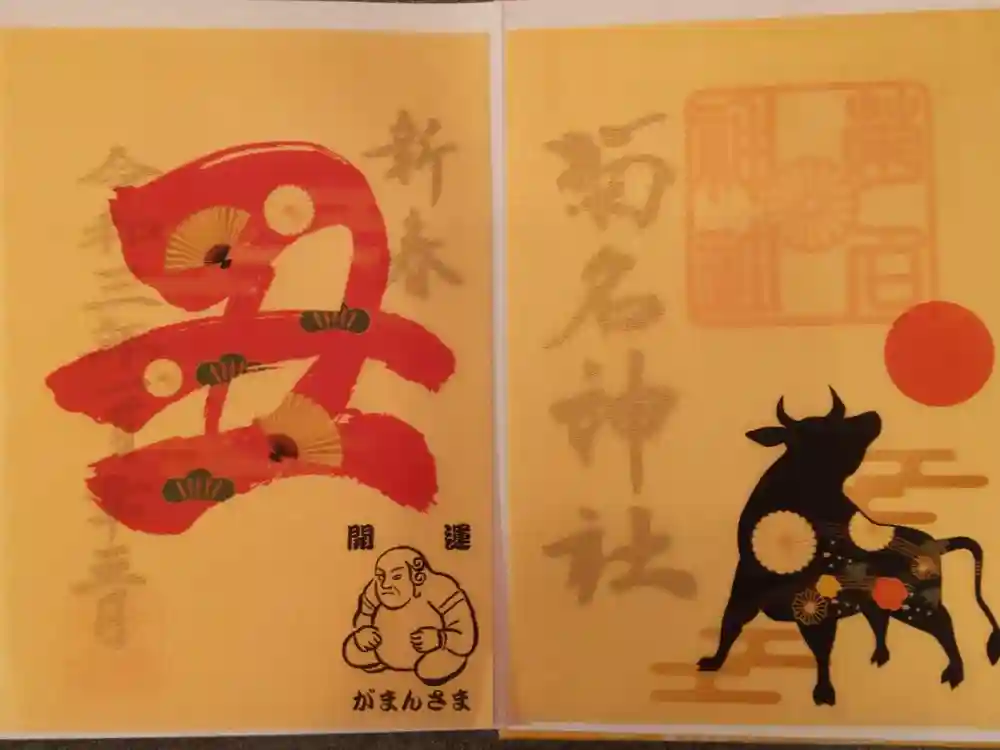 菊名神社
菊名
神社
新春
丑
令和三年
開運
がまんさま